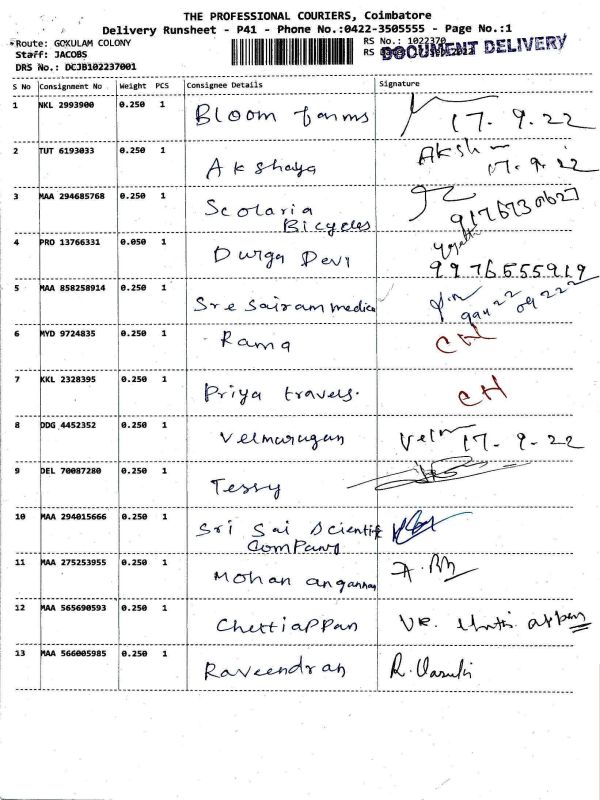 THE PROFESSIONAL COURIERS, Coimbatore
Delivery Runsheet - P41 - Phone No.:0422-3505555 - Page No.:1
Route: GOKULAM COLONY
RS No.: 1022370
DOCUMENT DELIVERY
Staff: JACOBS
RS
DRS No.: DCJB102237001
S No Consignment No Weight PCS Consignee Details Signature
1 NKL 2993900 0.250 1 Bloom farms 17-9-22
2 TUT 6193033 0.250 1 Akshaya Aksh
3 MAA 294685768 0.250 1 Scolaria
Bicycles
4 PRO 13766331 0.050 1 Durga Devi
9976555919
5 MAA 858258914 0.250 1 Sree Sairam medical
6 MYD 9724835 0.250 1 Rama CH
7 KKL 2328395 0.250 1 Priya travels. CH
8 DDG 4452352 0.250 1 Velmurugan 17-9-22
9 DEL 70087280 0.250 1 Tessy
10 MAA 294015666 0.250 1 Sri Sai Scientific
Company
11 MAA 275253955 0.250 1 Mohan angannan
12 MAA 565690593 0.250 1 Chettiappan
13 MAA 566005985 0.250 1 Raveendran R. Vasuki